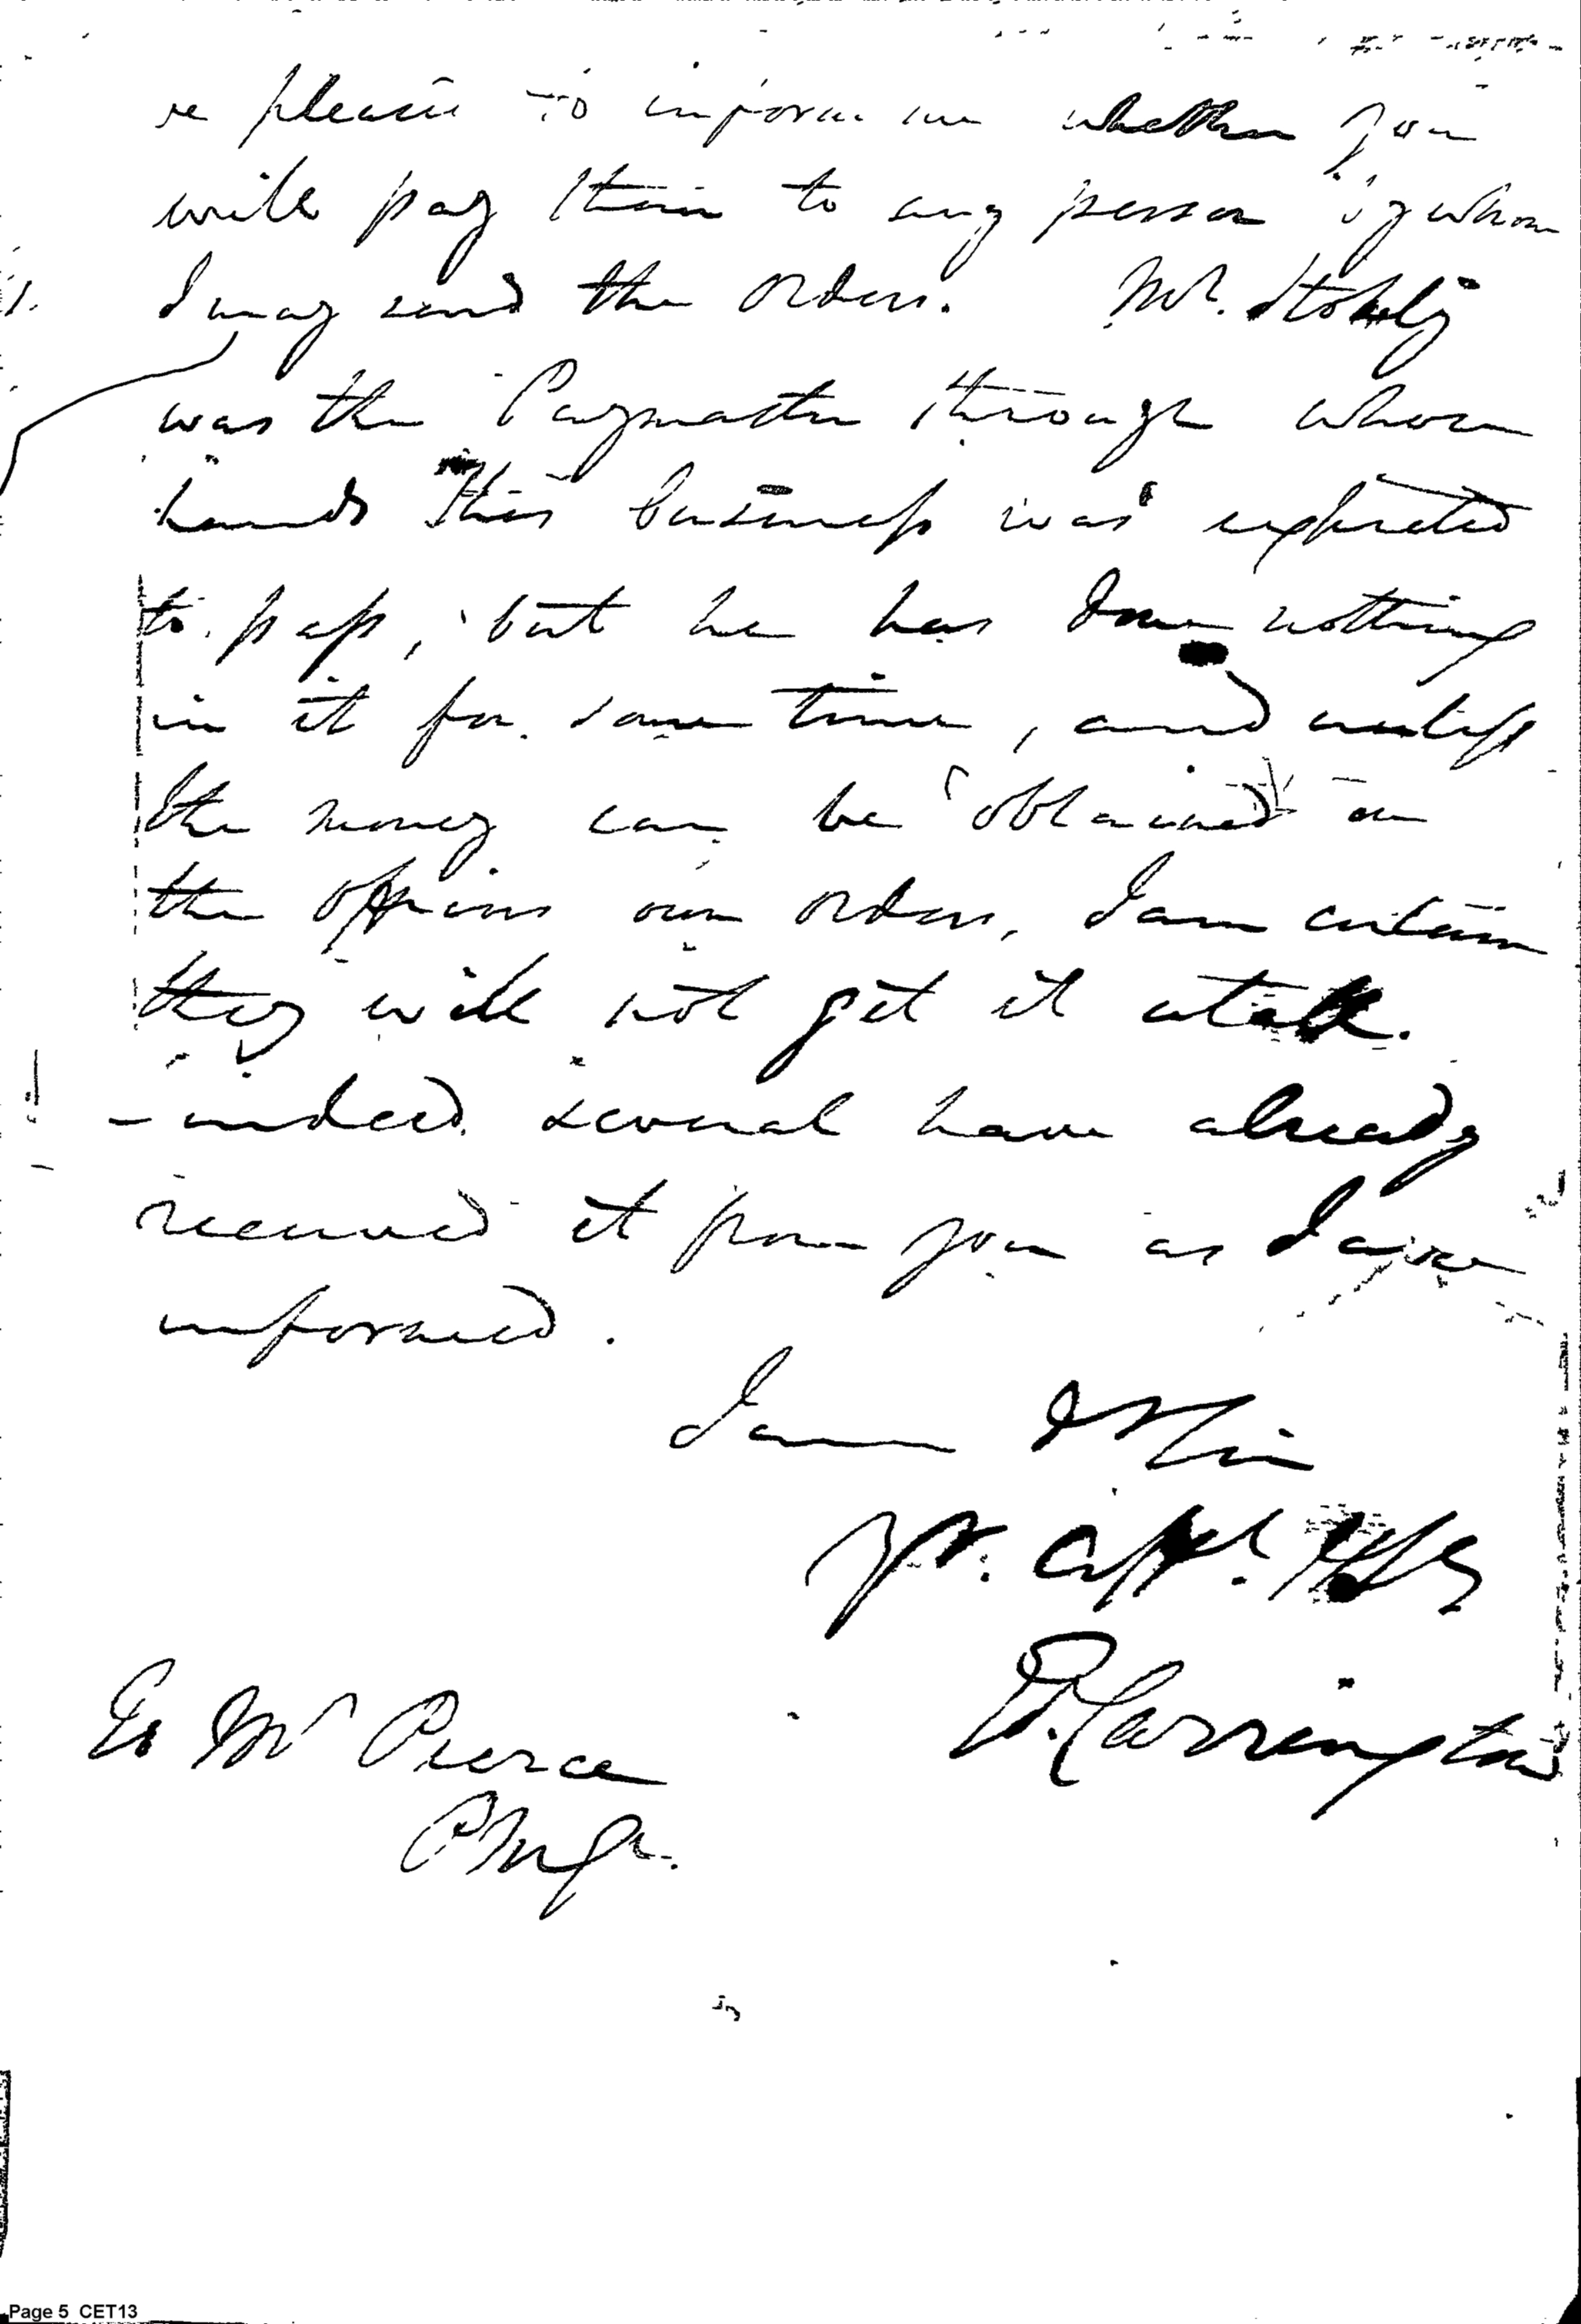 be please to inform me whether you
will pay them to any person by whom
I may send the orders. Mr. Stokely
was the Paymaster through whose
hands this business was expected
to pass, but he has done nothing
in it for some time, and unless
the money can be obtained on
the officers own orders, I am certain
they will not get it atall.
- indeed several have already
received it from you as I am
informed.
I am D Sir
yr. Obt.
E. Carrington
To Mr Pierce
P M Gl.
Page 5 CET13